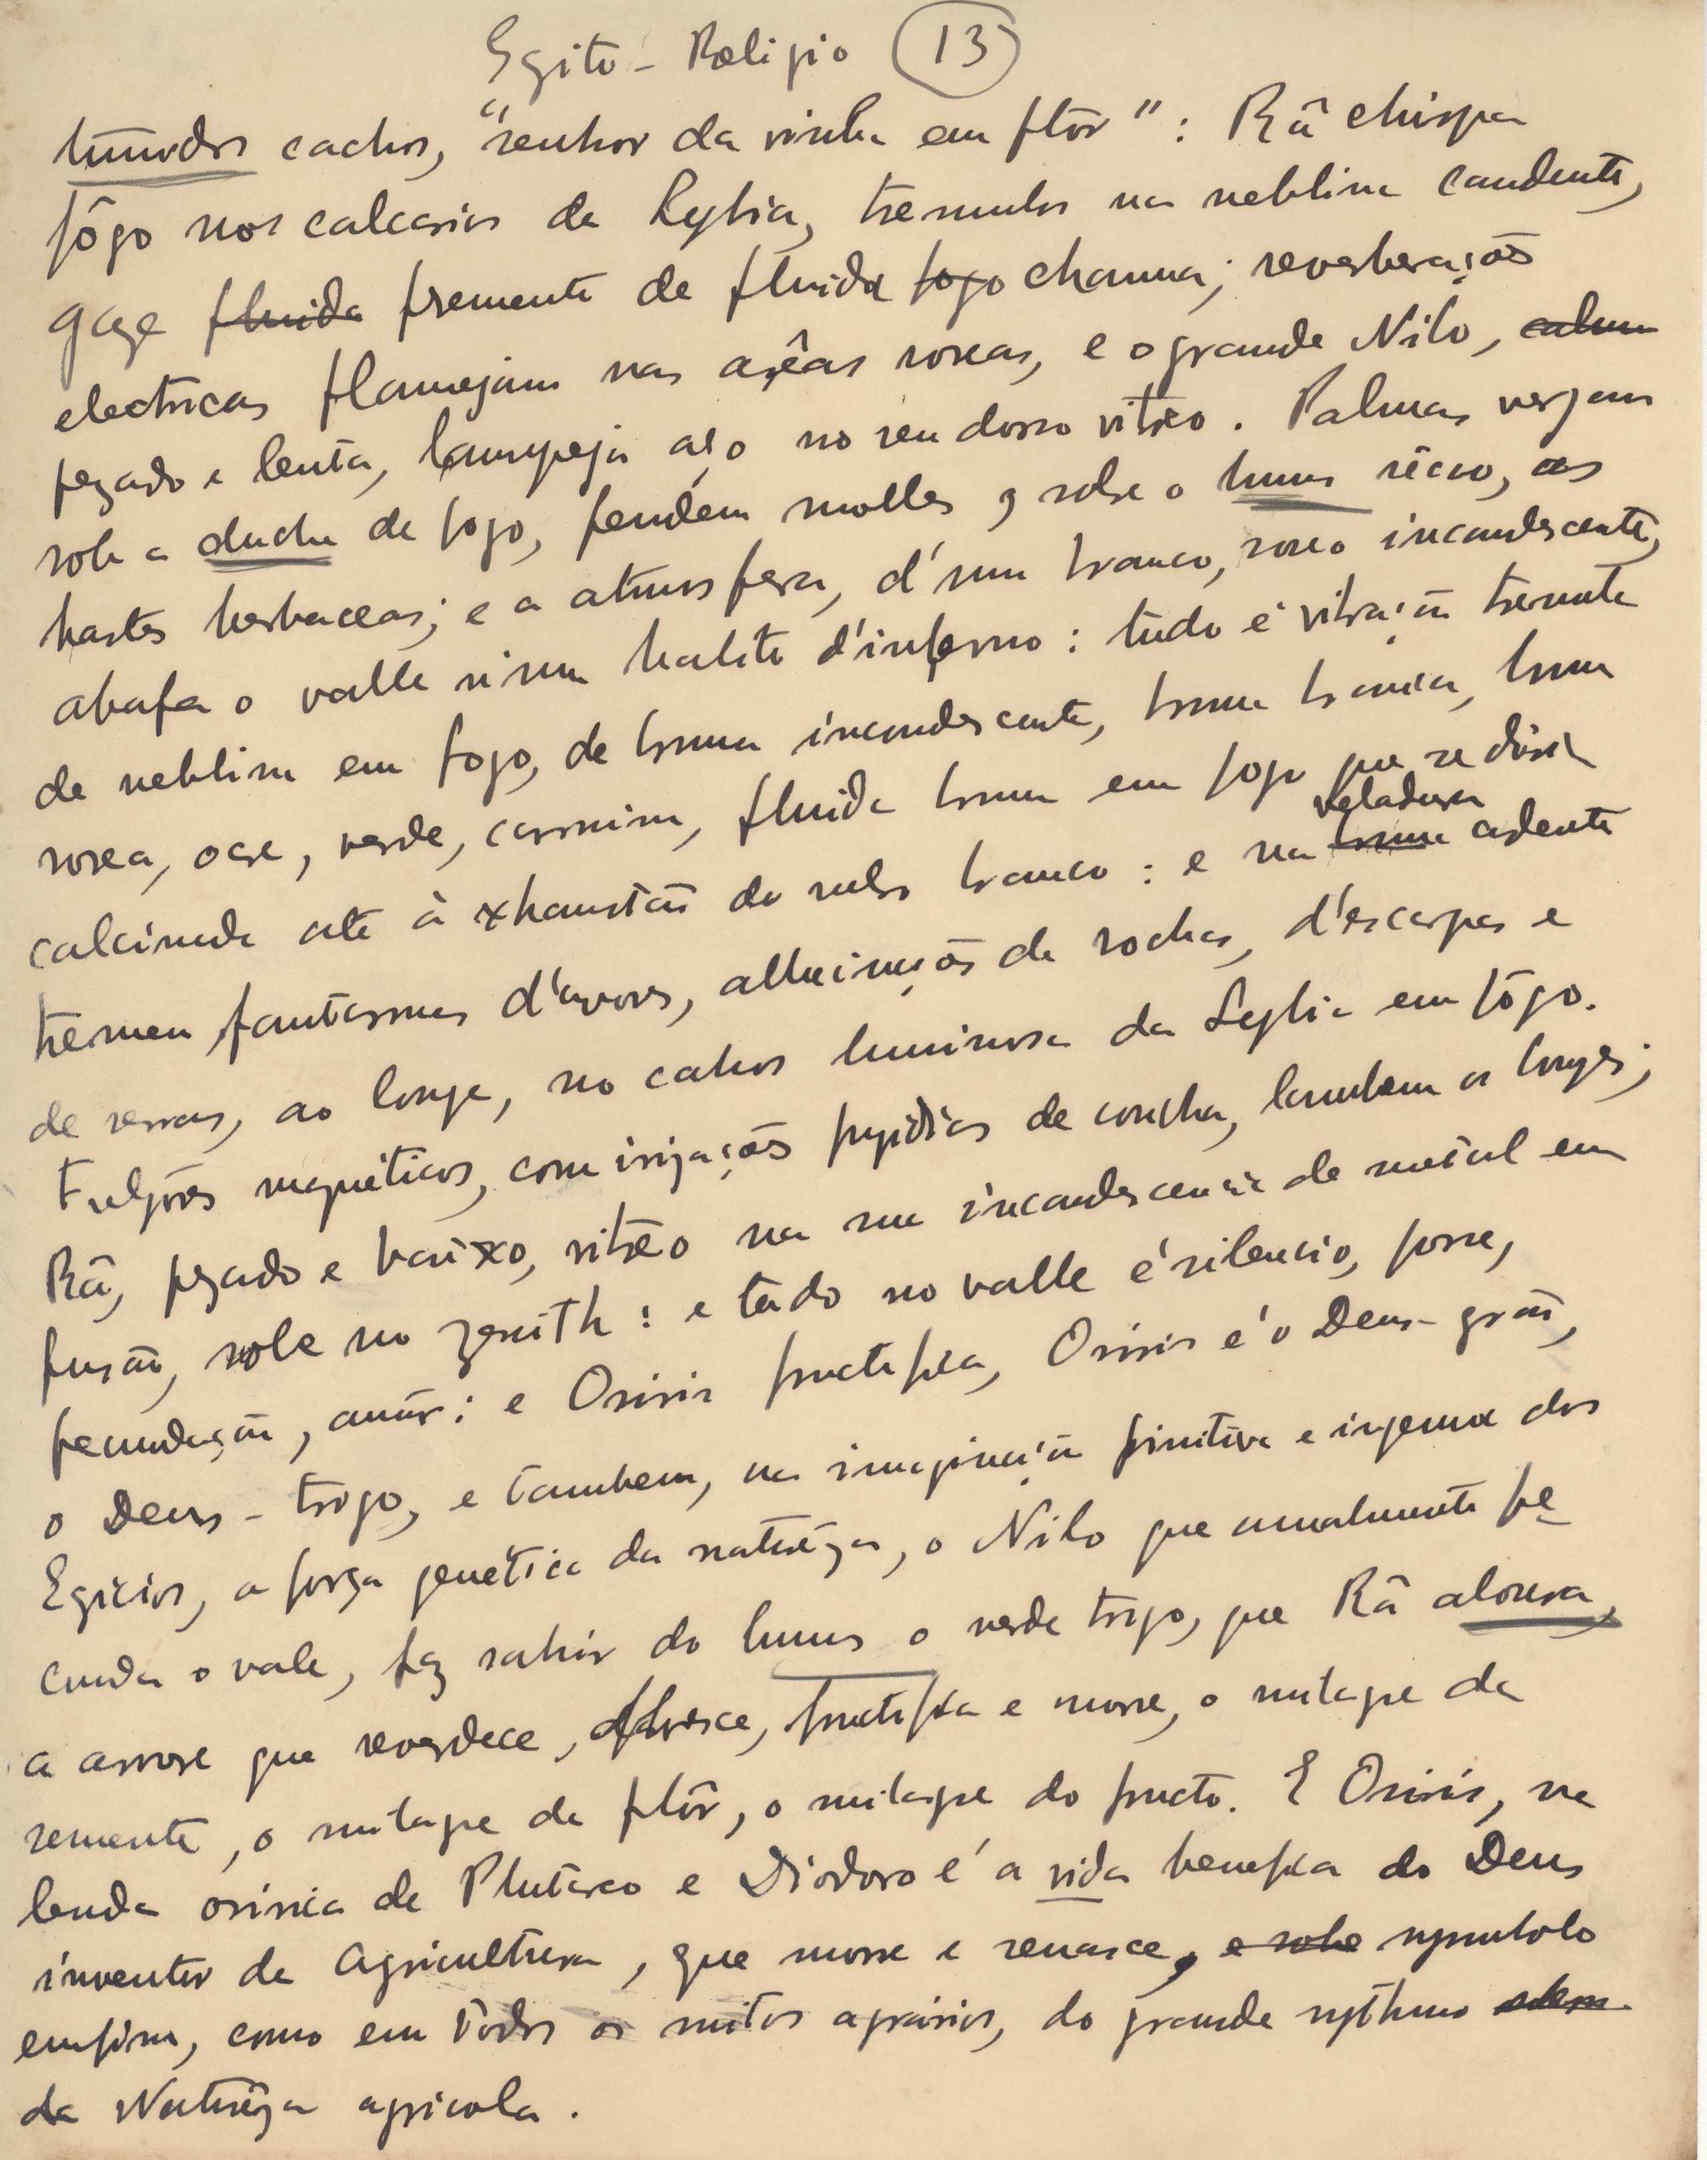 Egito - Religio (13)
túmidos cachos, "senhor da vinha em flôr": Râ chispa
fôgo nos calcarios da Lybia, tremulos na neblina candente,
gaze fluida fremente de fluida fogo chamma; reverberações
electricas flamejam nas arêas roxas, e o grande Nilo, calmo
pezado e lento, lampeja aço no seu dorso vitreo. Palmas vergam
sob a ducha de fogo, pendem molles, sobre o humus sêcco, as
hastes herbaceas; e a atmosfera, d'um branco, roxo incandescente,
abafa o valle n'um halito d'inferno: tudo é vibração tremente
de neblina em fogo, de bruma incandescente, bruma branca, bruma
roxa, ocre, verde, carmim, fluida bruma em fogo que se diria
calcinada até à exhaustão do rubro branco: e na bruma veladura ardente
tremem fantasmas d'arvores, allucinações de rochas, d'escarpas e
de serras, ao longe, no cahos luminoso da Lybia em fôgo.
Fulgôres magneticos, com irizações fugidias de concha, lambem os longes;
Râ, pezado e baixo, vitreo na sua incandescencia de metal em
fusão, sobe no zenith: e tudo no valle é silencio, força,
fecundação, amôr: e Osiris fructifica, Osiris é o Deus-grão,
o Deus-trigo, e tambem, na imaginação primitiva e ingenua dos
Egicios, a força genética da naturêza, o Nilo que anualmente fe-
cunda o vale, faz sahir do humus o verde trigo, que Râ aloura,
a arvore que reverdece, floresce, fructifica e morre, o milagre da
semente, o milagre da flôr, o milagre do fructo. E Osiris, na
lenda osirica de Plutarco e Diodoro é a vida benefica do Deus
inventor da Agricultura, que morre e renasce, e sobe symbolo
emfim, como em todos os mitos agrários, do grande rythmo
da Naturêza agricola.